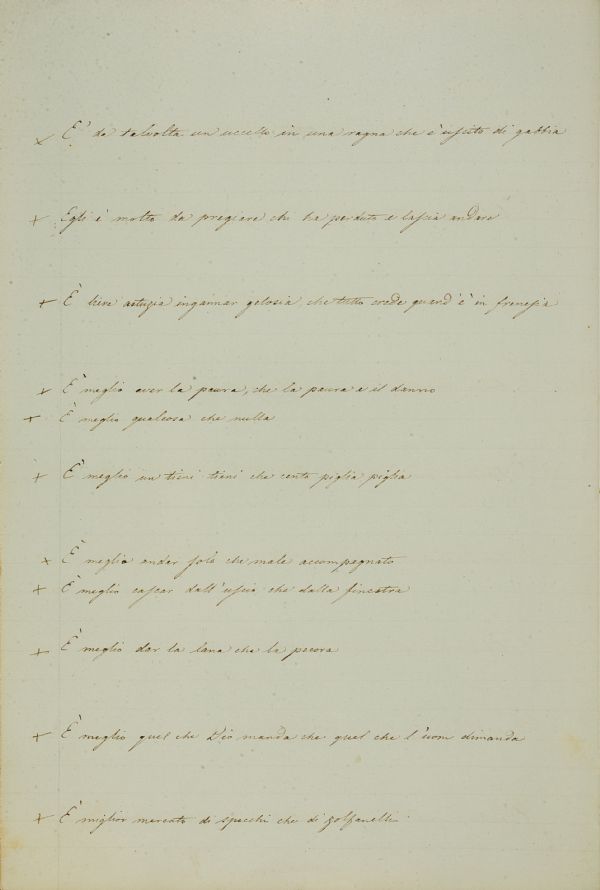 × E' dà talvolta un uccello in una ragna che è uscito di gabbia
× Egli è molto da pregiare chi ha perduto e lascia andare
× È lieve astuzia ingannar gelosia, che tutto crede quand' è in frenesia
× È meglio aver la paura, che la paura e il danno
× È meglio qualcosa che nulla
× È meglio un tieni tieni che cento piglia piglia
× È meglio andar solo che male accompagnato
× È meglio cascar dall'uscio che dalla finestra
× È meglio dar la lana che la pecora
× È meglio quel che Dio manda che quel che l'uom dimanda
× È miglior mercato di specchi che di zolfanelli